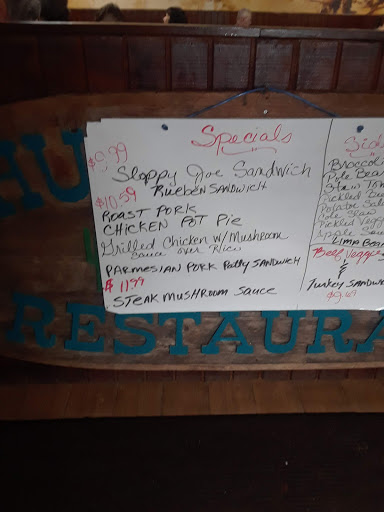 Specials
$9.99
Sloppy Joe Sandwich
Rueben Sandwich
$10.59
Roast Pork
Chicken Pot Pie
Grilled Chicken w/ Mushroom
Sauce over Rice
Parmesian Pork Patty Sandwich
$11.99
Steak Mushroom Sauce
Broccol
Pole Bean
Stew Tom
Pickled Be
Potatoe Sala
Cole Slaw
Pickled Veggi
Apple Sauc
Lima Bean
Beef Veggie
&
Turkey Sandwi
HU
RESTAURA